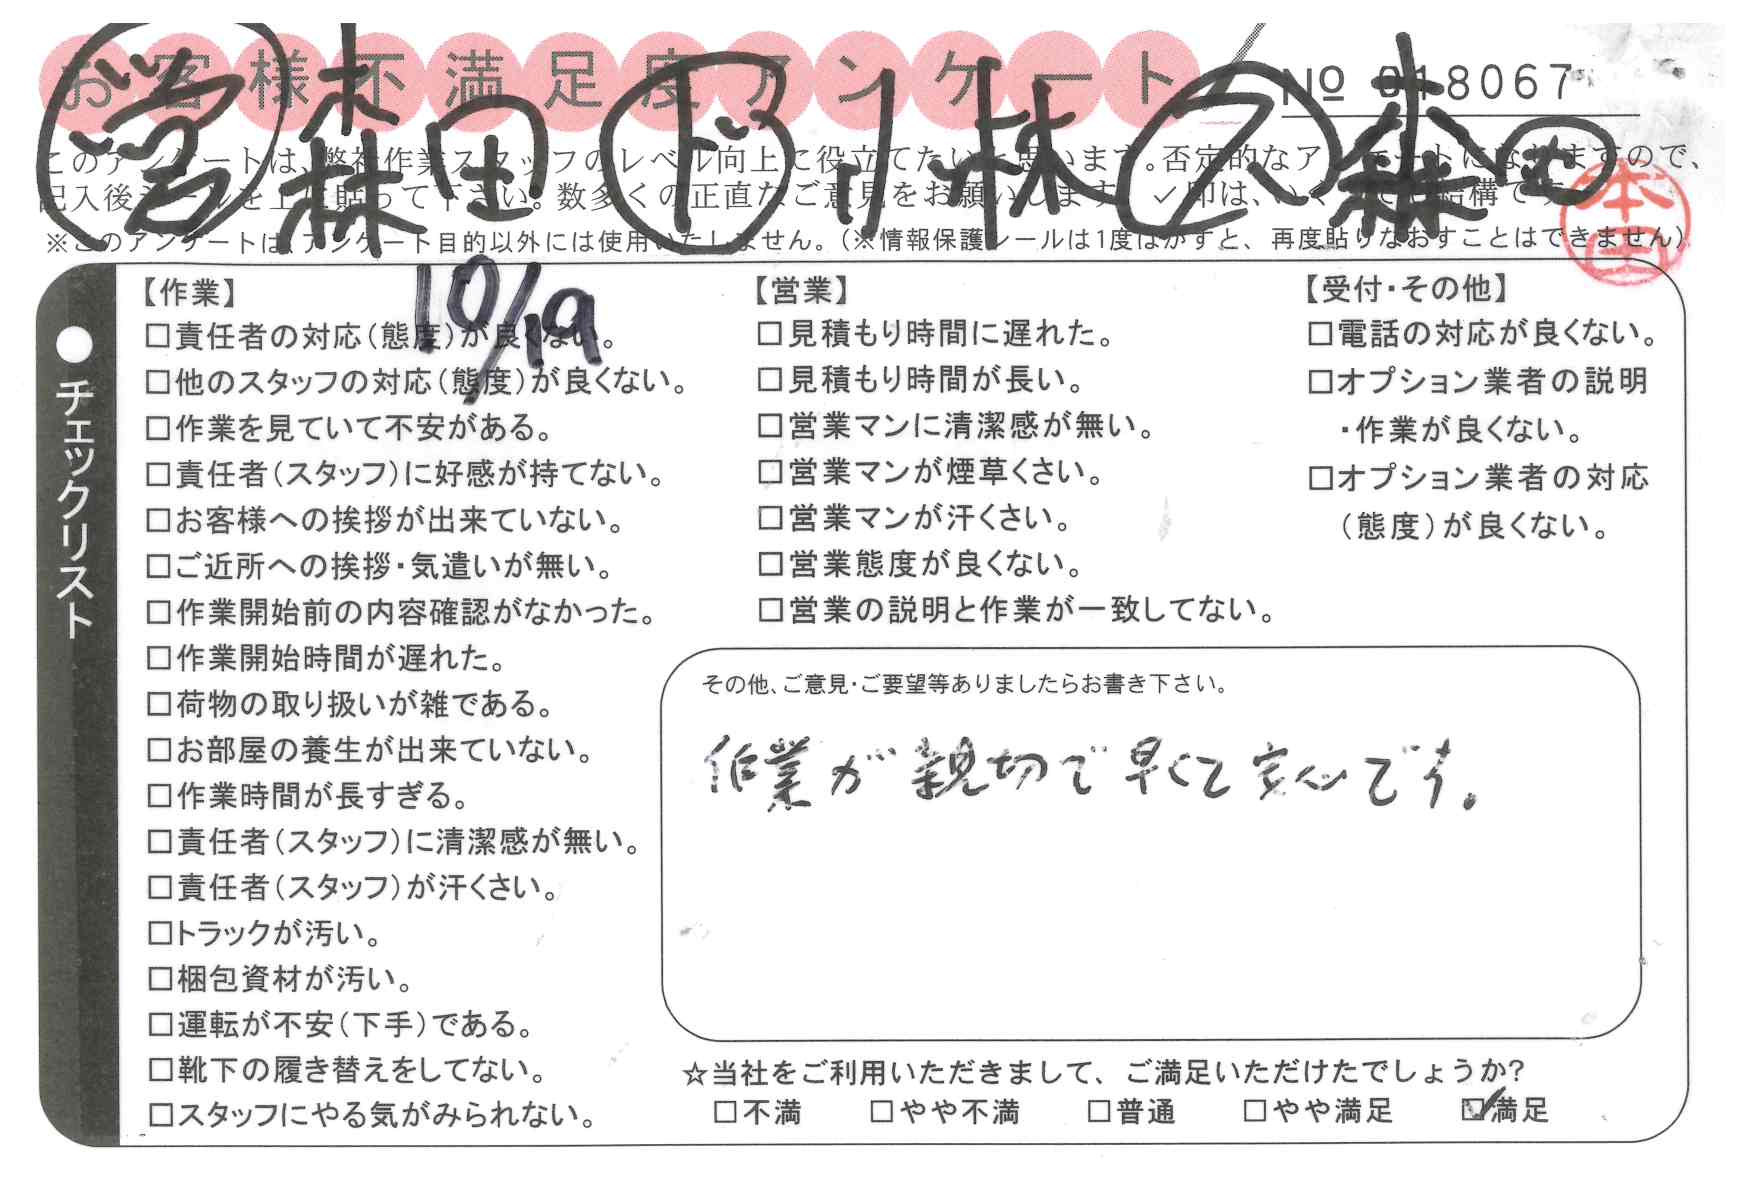 お客様不満足度アンケート
№ 018067
営 森田 ド 小林 ス 森田
このアンケートは、弊社作業スタッフのレベル向上に役立てたいと思います。否定的なアンケートになりますので、
記入後シールを上に貼って下さい。数多くの正直なご意見をお願いします。✓印は、いくつでも結構です。
※このアンケートは、アンケート目的以外には使用いたしません。(※情報保護シールは1度はがすと、再度貼りなおすことはできません)
本田
10/19
●チェックリスト
【作業】
□責任者の対応(態度)が良くない。
□他のスタッフの対応(態度)が良くない。
□作業を見ていて不安がある。
□責任者(スタッフ)に好感が持てない。
□お客様への挨拶が出来ていない。
□ご近所への挨拶・気遣いが無い。
□作業開始前の内容確認がなかった。
□作業開始時間が遅れた。
□荷物の取り扱いが雑である。
□お部屋の養生が出来ていない。
□作業時間が長すぎる。
□責任者(スタッフ)に清潔感が無い。
□責任者(スタッフ)が汗くさい。
□トラックが汚い。
□梱包資材が汚い。
□運転が不安(下手)である。
□靴下の履き替えをしてない。
□スタッフにやる気がみられない。
【営業】
□見積もり時間に遅れた。
□見積もり時間が長い。
□営業マンに清潔感が無い。
□営業マンが煙草くさい。
□営業マンが汗くさい。
□営業態度が良くない。
□営業の説明と作業が一致してない。
【受付・その他】
□電話の対応が良くない。
□オプション業者の説明
・作業が良くない。
□オプション業者の対応
(態度)が良くない。
その他、ご意見・ご要望等ありましたらお書き下さい。
作業が親切で早くて安心です。
☆当社をご利用いただきまして、ご満足いただけたでしょうか?
□不満 □やや不満 □普通 □やや満足 ☑満足